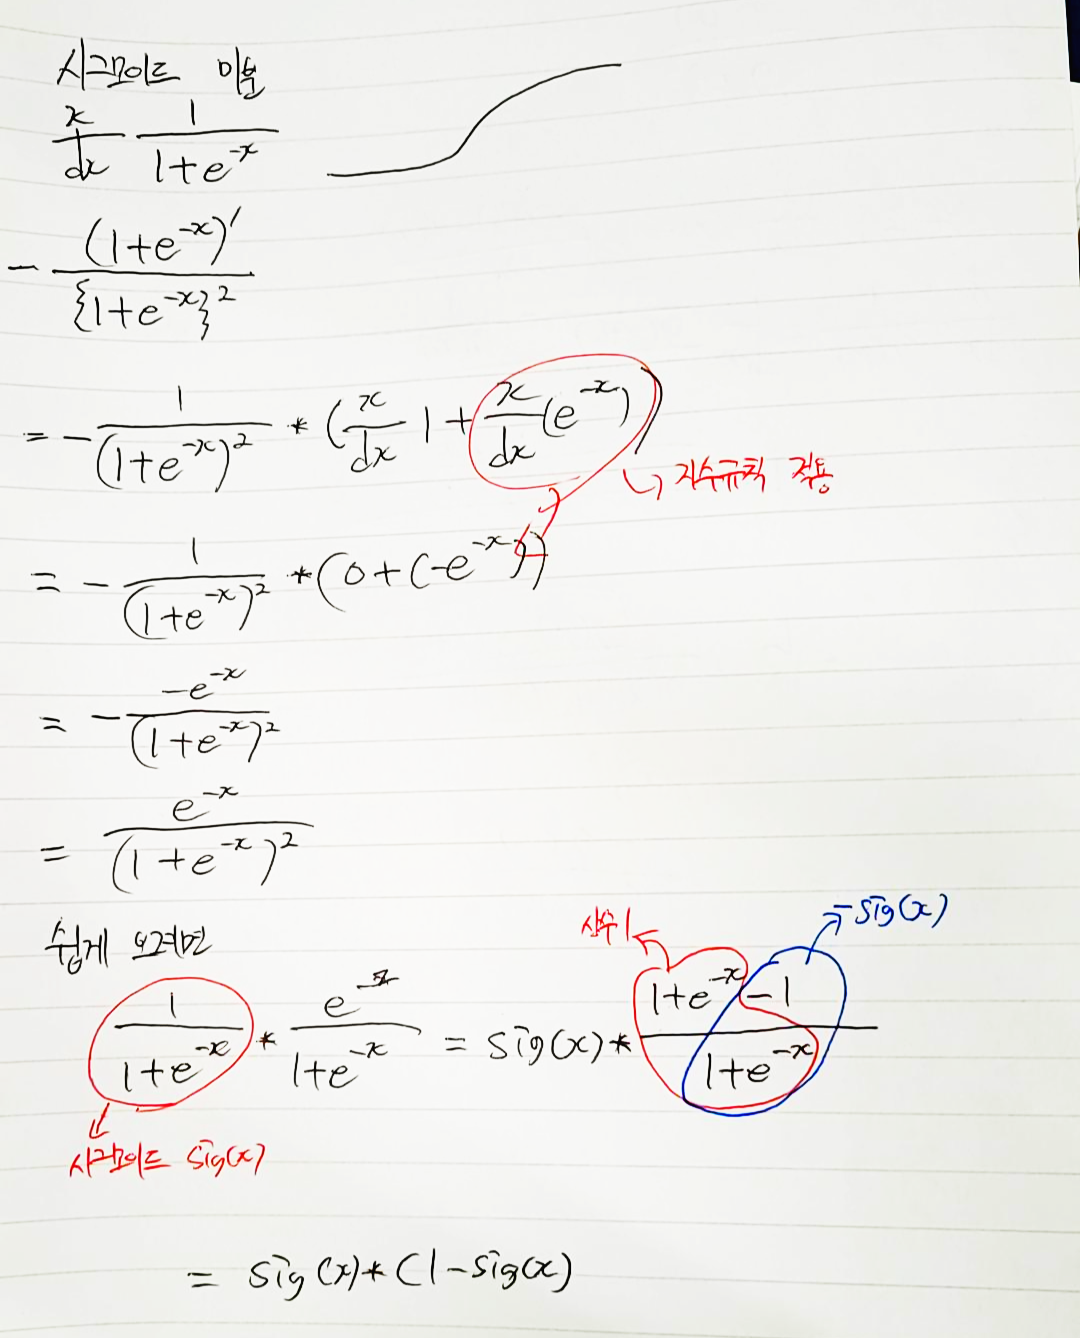 시그모이드 미분
x/dx 1/(1+e^-x)
- (1+e^-x)′/{1+e^-x}²
= - 1/(1+e^-x)² * (x/dx 1 + x/dx (e^-x))
↳ 지수규칙 적용
= - 1/(1+e^-x)² * (0+(-e^-x))
= - -e^-x/(1+e^-x)²
= e^-x/(1+e^-x)²
쉽게
상수1
-sig(x)
1/(1+e^-x) * e^-x/(1+e^-x) = sig(x) * (1+e^-x-1)/(1+e^-x)
시그모이드 sig(x)
= sig(x)*(1-sig(x)